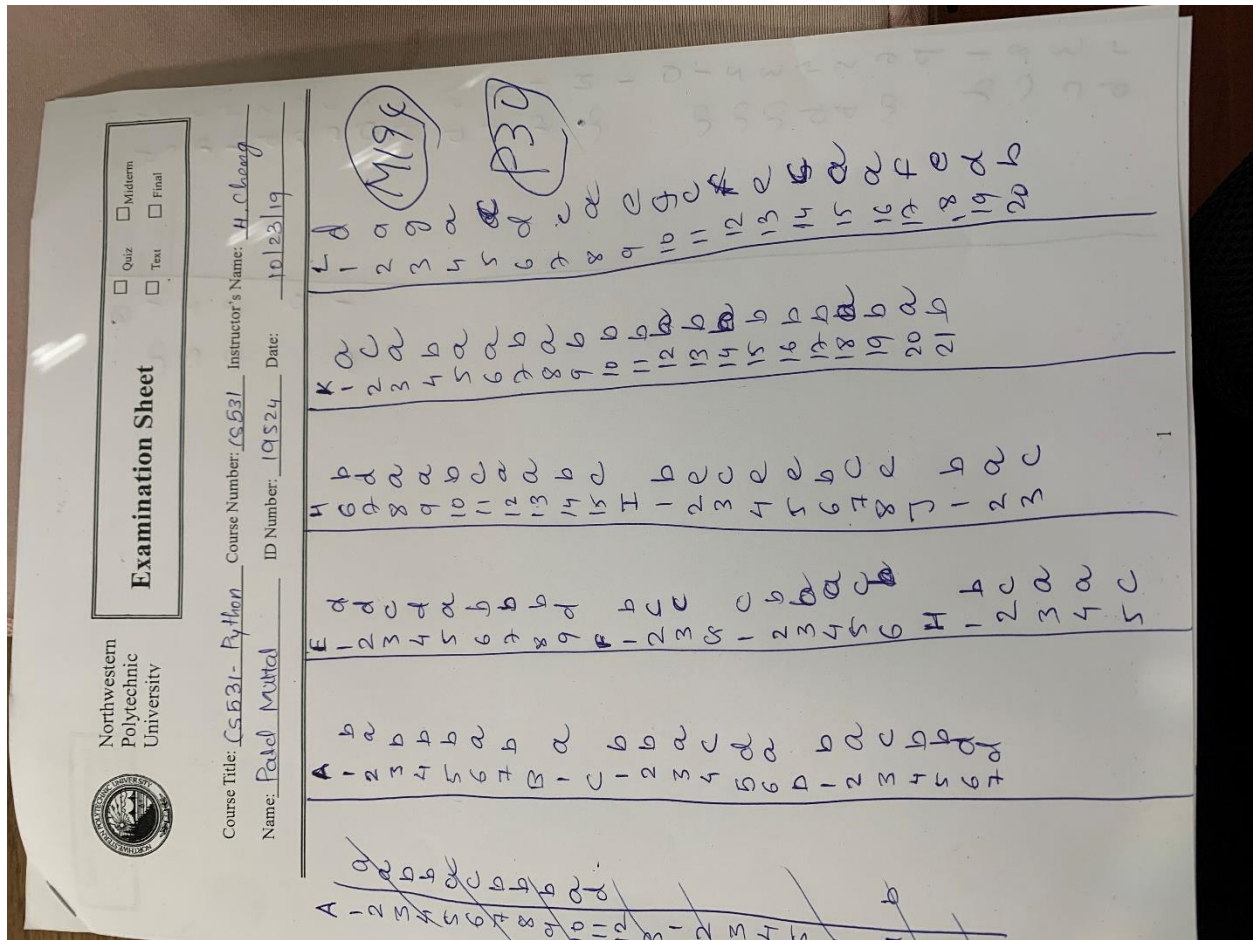 NORTHWESTERN POLYTECHNIC UNIVERSITY
Northwestern
Polytechnic
University
Examination Sheet
Quiz
Midterm
Text
Final
Course Title: CS531- Python Course Number: CS531 Instructor's Name: H. Cheng
Name: Patel Mittal ID Number: 19524 Date: 10/23/19
A
1 b
2 a
3 b
4 b
5 b
6 a
7 b
B
1 a
C
1 b
2 b
3 a
4 c
5 d
6 a
D
1 b
2 a
3 c
4 b
5 b
6 d
7 d
E
1 d
2 d
3 c
4 d
5 a
6 b
7 b
8 b
9 d
F
1 b
2 c
3 c
G
1 c
2 b
3
4 a
5 c
6
H
1 b
2 c
3 a
4 a
5 c
H
6 b
7 d
8 a
9 a
10 b
11 c
12 a
13 a
14 b
15 c
I
1 b
2
3 c
4
5
6 b
7 c
8
J
1 b
2 a
3 c
K
1 a
2 c
3 a
4 b
5 a
6 a
7 b
8 a
9 b
10 b
11 b
12
13 b
14
15 b
16 b
17 b
18
19 b
20 a
21 b
L
1 d
2 a
3 g
4 a
5
6 d
7 e
8 d
9 c
10 g
11 c
12
13 e
14
15 a
16 a
17 f
18 e
19 d
20 b
M194
P30
1